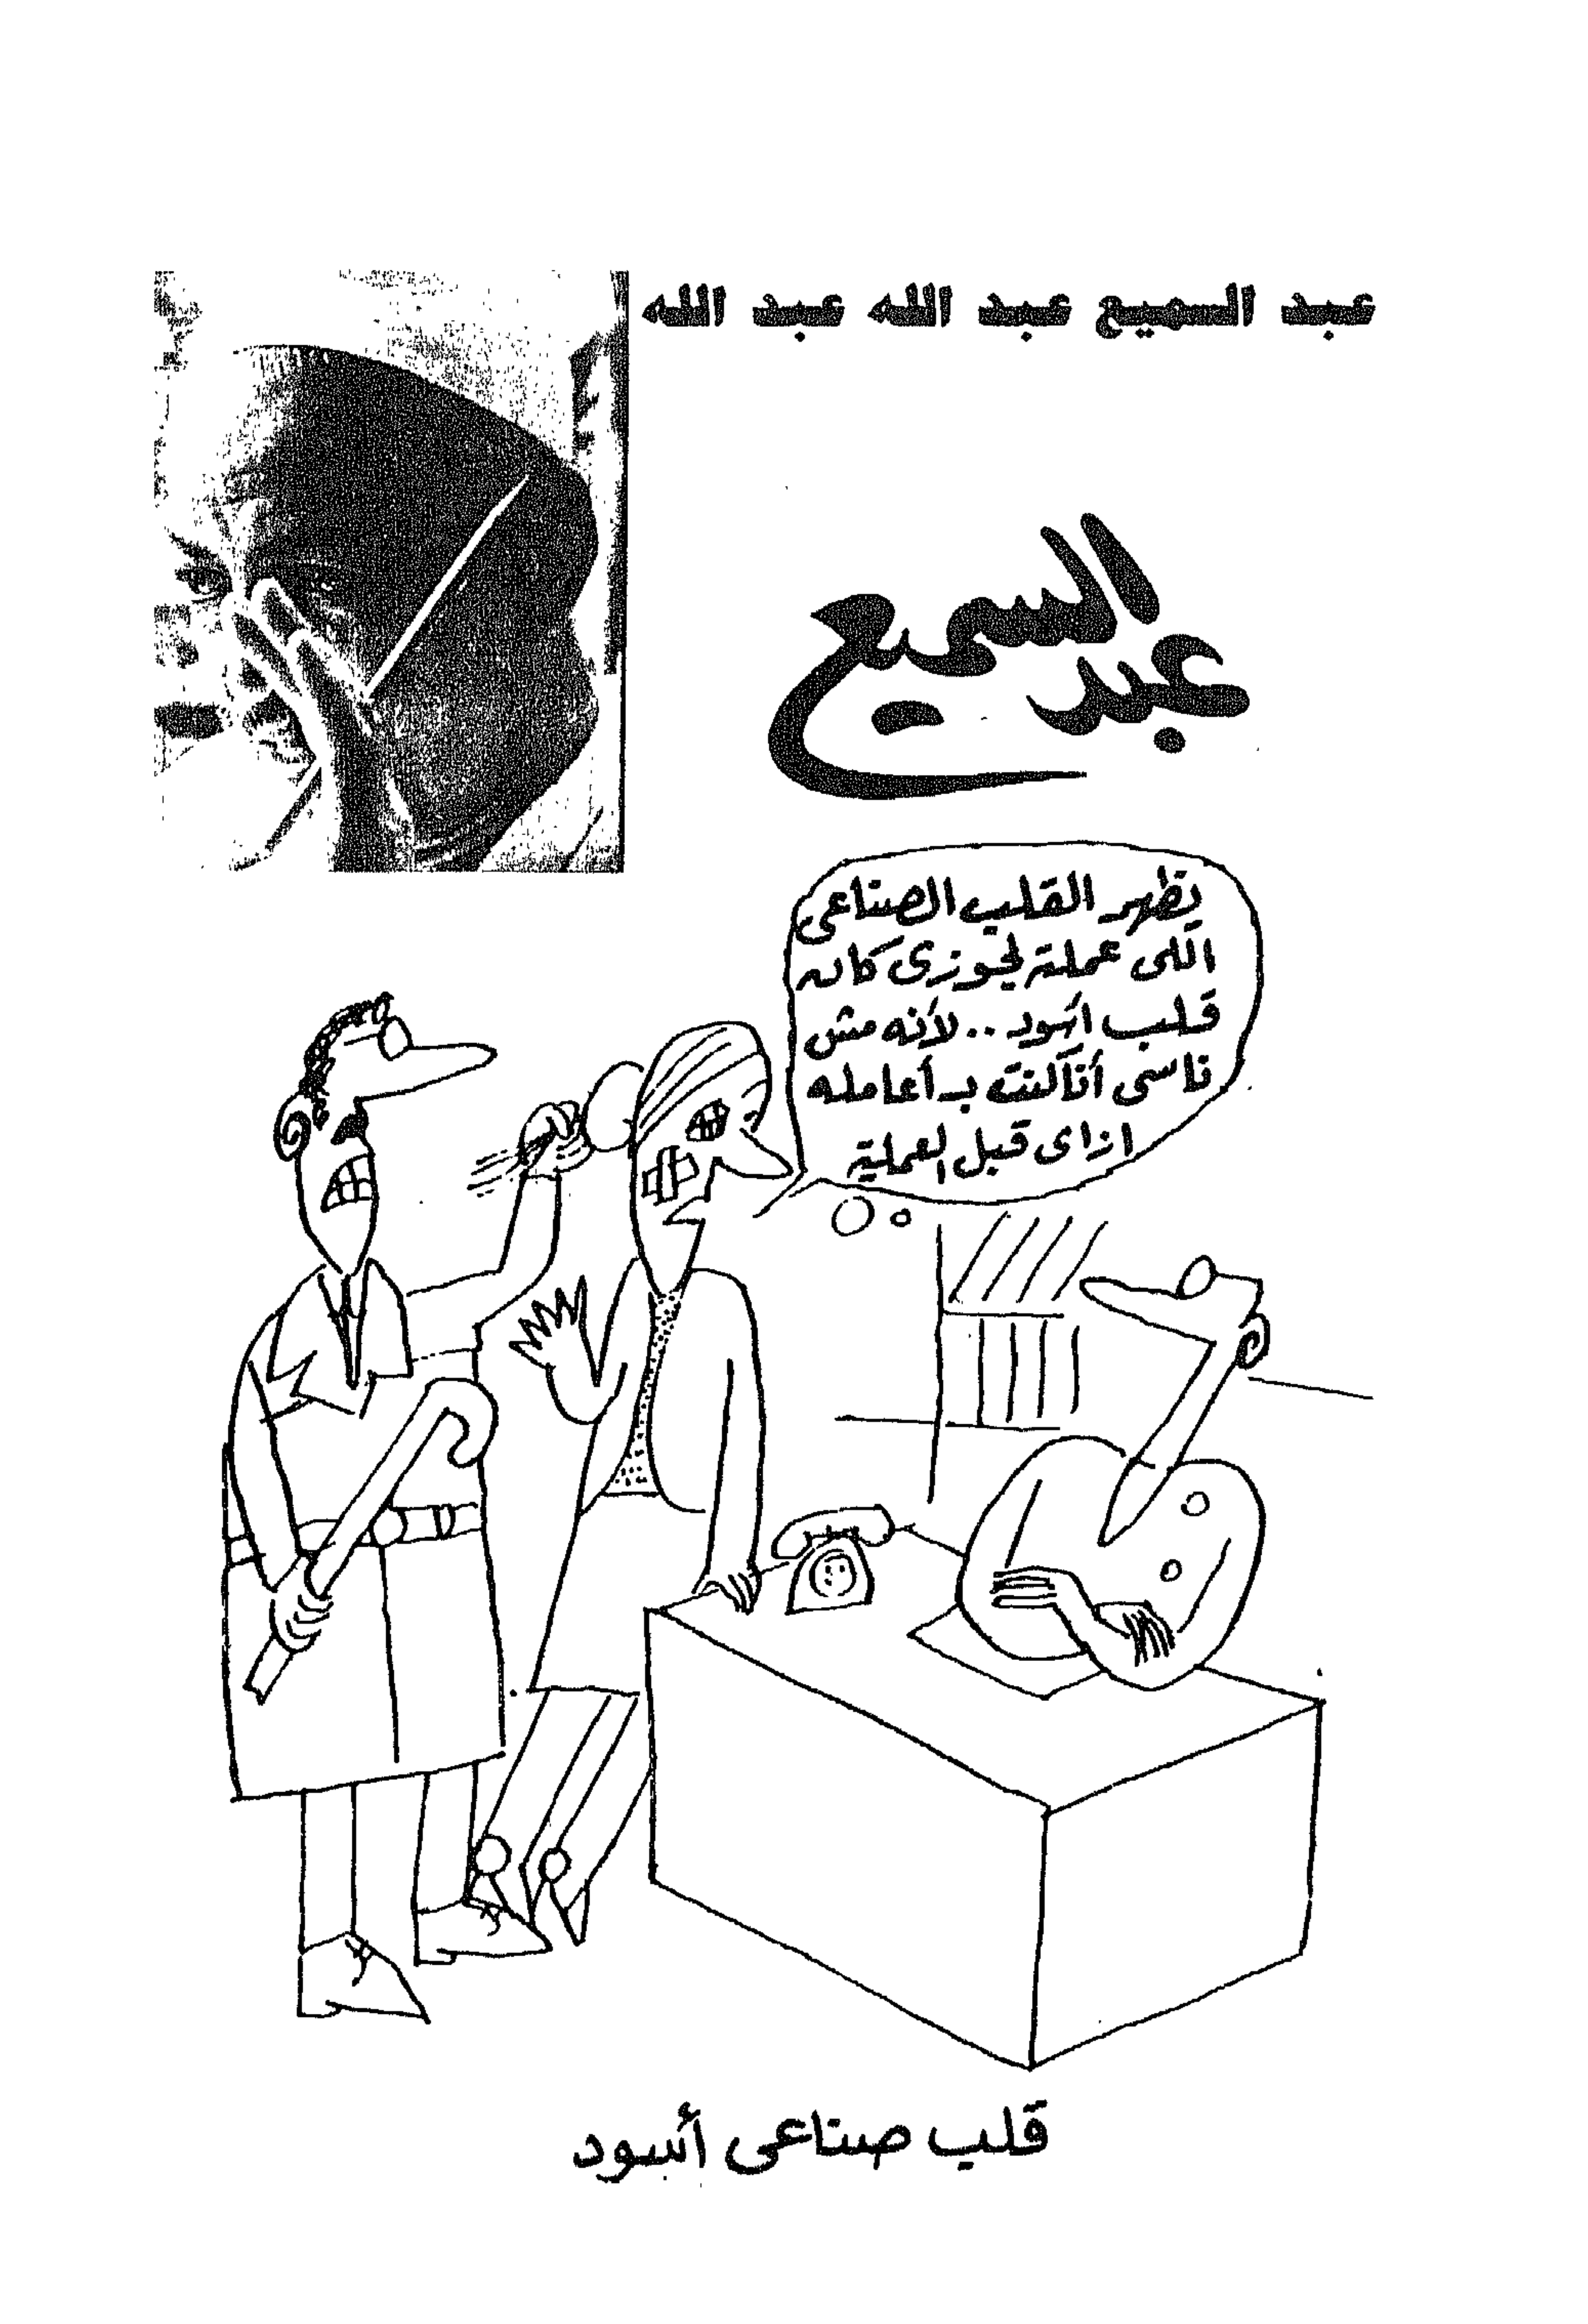 عبد السميع عبد الله عبد الله
عبد السميع
يظهر القلب الصناعى
اللى عملته لجوزى كان
قلب اسود .. لأنه مش
ناسى أنا كنت بـ أعامله
ازاى قبل العملية
قلب صناعى أسود